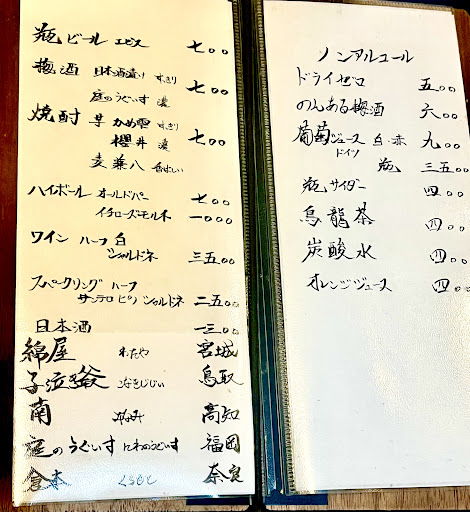 瓶ビール エビス 七〇〇
梅酒 日本酒造り すっきり 七〇〇
庭のうぐいす 濃
焼酎 芋 かめ雫 すっきり
櫻井 濃 七〇〇
麦 兼八 香ばしい
ハイボール オールドパー 七〇〇
イチローズモルト 一〇〇〇
ワイン ハーフ 白
シャルドネ 三五〇〇
スパークリング ハーフ
サンテロ ピノ シャルドネ 二五〇〇
日本酒 一三〇〇
綿屋 わたや 宮城
子泣き爺 こなきじじい 鳥取
南 みなみ 高知
庭のうぐいす にわのうぐいす 福岡
倉本 くらもと 奈良
ノンアルコール
ドライゼロ 五〇〇
のんある梅酒 六〇〇
葡萄ジュース 白・赤 九〇〇
ドイツ 瓶 三五〇〇
瓶サイダー 四〇〇
烏龍茶 四〇〇
炭酸水 四〇〇
オレンジジュース 四〇〇